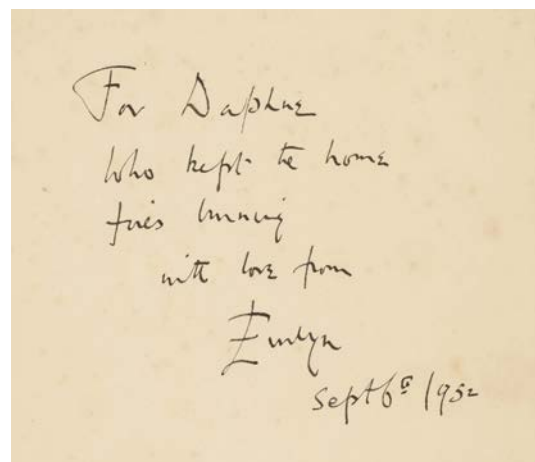 For Daphne
who kept the home
fires burning
with love from
Evelyn
Sept 6th 1952